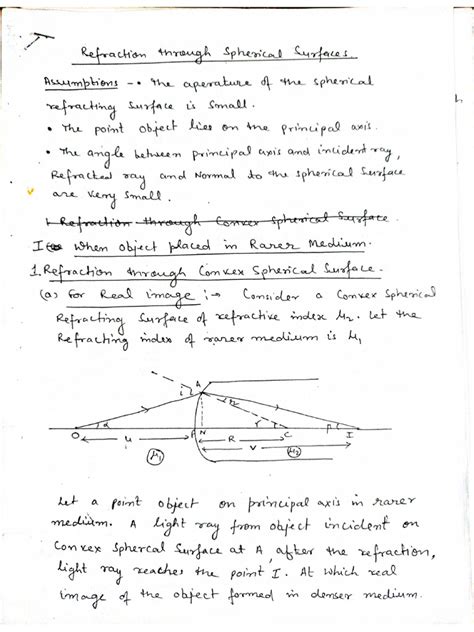 Refraction through Spherical Surfaces.
Assumptions - • The aperature of the spherical
refracting surface is small.
• The point object lies on the principal axis.
• The angle between principal axis and incident ray,
Refracted ray and Normal to the spherical Surface
are very small.
1. Refraction through Convex Spherical Surface.
I When object placed in Rarer Medium.
1. Refraction through Convex Spherical Surface.
(a) For Real image :→ Consider a Convex Spherical
Refracting Surface of refractive index μ2. Let the
Refracting index of rarer medium is μ1
A
i
r
O α P N γ C β I
u R
V
μ1 μ2
Let a point object on principal axis in rarer
medium. A light ray from object incident on
Convex Sphercal Surface at A, after the refraction,
light ray reaches the point I. At which real
image of the object formed in denser medium.